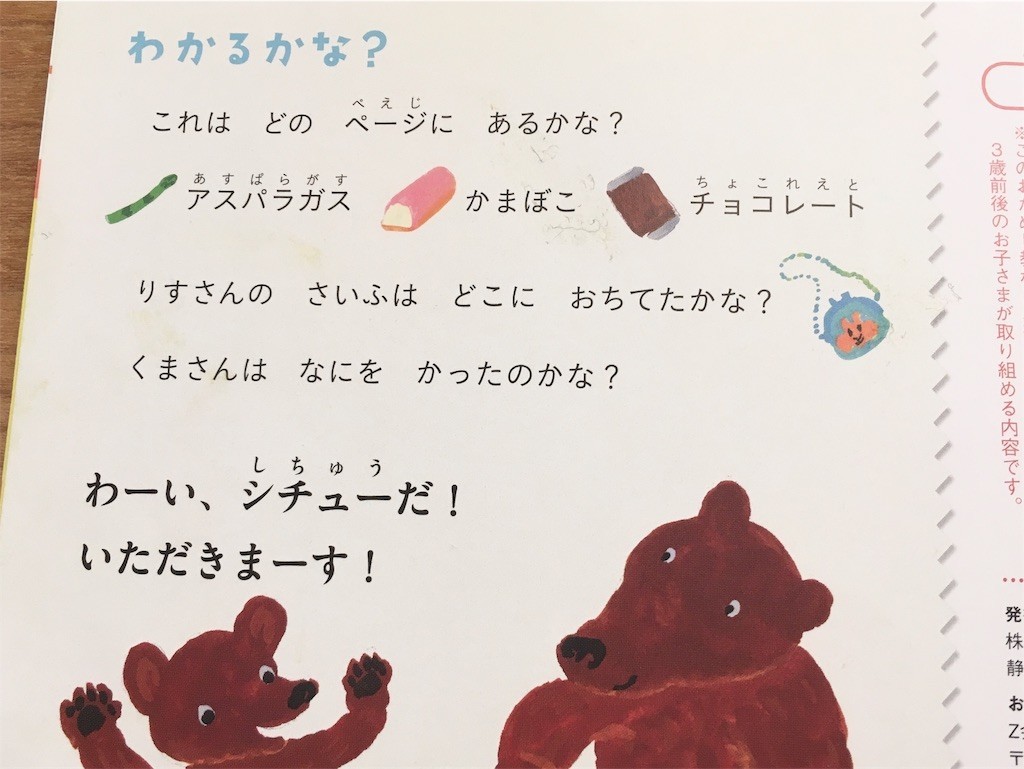 わかるかな？
これは どの ページに あるかな？
ぺえじ
アスパラガス かまぼこ チョコレート
あすぱらがす ちょこれえと
りすさんの さいふは どこに おちてたかな？
くまさんは なにを かったのかな？
わーい、シチューだ！
しちゅう
いただきまーす！
3歳前後のお子さまが取り組める内容です。
発
株
静
お
Z会
〒